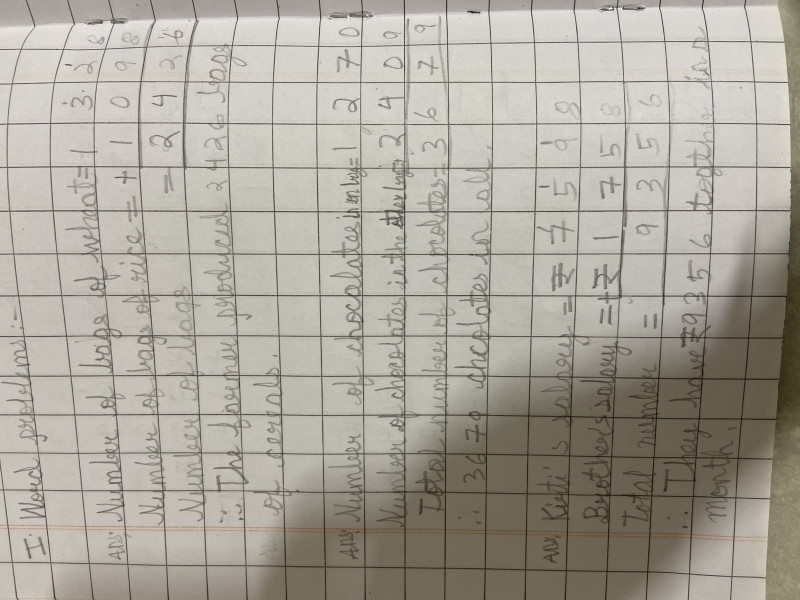 I. Word problems:-
Ans: Number of bags of wheat = 1 3 2 8
Number of bags of rice = + 1 0 9 8
Number of bags = 2 4 2 6
∴ The farmer produced 2426 bags
of cereals.
Ans: Number of chocolates in = 1 2 7 0
Number of chocolates in the = 2 4 0 9
Total number of chocolates = 3 6 7 9
∴ 3679 chocolates in all.
Ans: Kirti's salary = ₹ 7 5 9 8
Brother's salary = + ₹ 1 7 5 8
Total number = 9 3 5 6
∴ They have ₹ 9356 together in a
month.